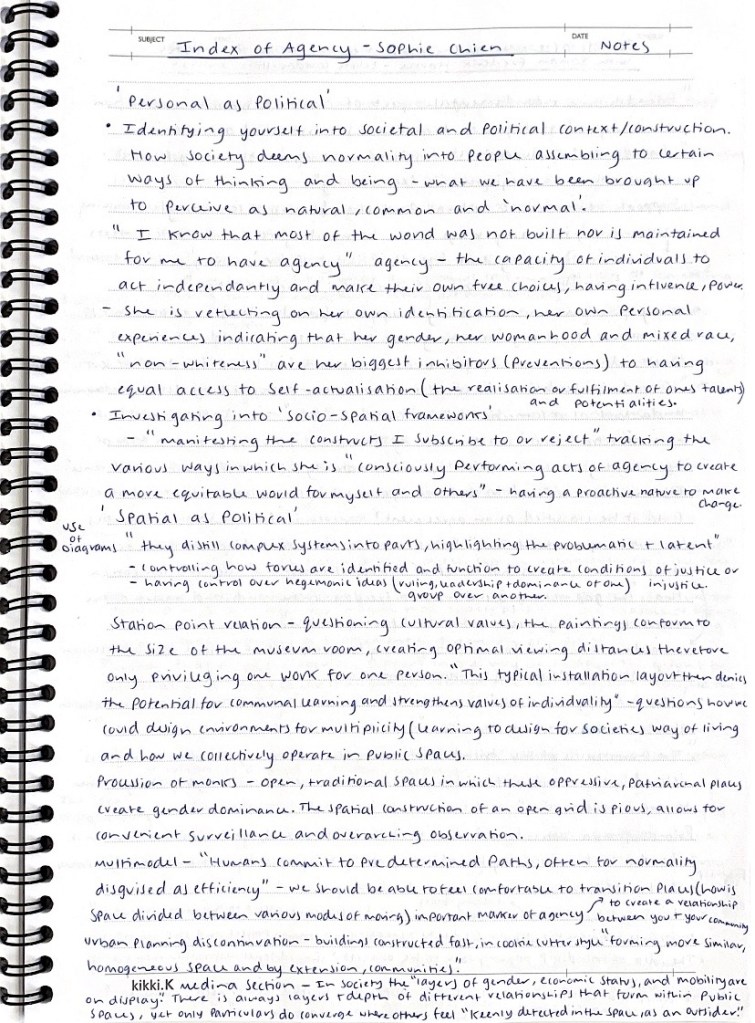 SUBJECT Index of Agency - Sophie Chien DATE Notes
'Personal as Political'
• Identifying yourself into societal and political context/construction.
How society deems normality into people assembling to certain
ways of thinking and being - what we have been brought up
to perceive as natural, common and 'normal'.
" I know that most of the world was not built nor is maintained
for me to have agency" agency - the capacity of individuals to
act independantly and make their own free choices, having influence, power.
- She is reflecting on her own identification, her own personal
experiences indicating that her gender, her womanhood and mixed race,
"non-whiteness" are her biggest inhibitors (preventions) to having
equal access to self-actualisation (the realisation or fulfilment of ones talents
and potentialities.)
• Investigating into 'socio-spatial frameworks'
- "manifesting the constructs I subscribe to or reject" tracking the
various ways in which she is "consciously performing acts of agency to create
a more equitable would for myself and others" - having a proactive nature to make
change
'Spatial as Political'
use of Diagrams "they distill complex systems into parts, highlighting the problematic + latent"
- controlling how forces are identified and function to create conditions of justice or
injustice.
- having control over hegemonic ideas (ruling, leadership + dominance of one)
group over another.
Station point relation - questioning cultural values, the paintings conform to
the size of the museum room, creating optimal viewing distances therefore
only privileging one work for one person. "This typical installation layout then denies
the potential for communal learning and strengthens values of individuality" - questions how we
could design environments for multiplicity (learning to design for societies way of living
and how we collectively operate in public spaces.
Procession of monks - open, traditional spaces in which these oppressive, patriarchal places
create gender dominance. The spatial construction of an open grid is pious, allows for
convenient surveillance and overarching observation.
Multimodel - "Humans commit to predetermined paths, often for normality
disguised as efficiency" - we should be able to feel comfortable to transition places (how is
space divided between various modes of moving) important marker of agency
to create a relationship
between you + your community
Urban planning discontinuation - buildings constructed fast, in cookie cutter style "forming more similar,
homogeneous space and by extension, communities."
kikki.K Medina Section - In society the "layers of gender, economic status, and mobility are
on display." There is always layers + depth of different relationships that form within public
spaces, yet only particulars do converge where others feel "Keenly detected in the space, as an outsider."